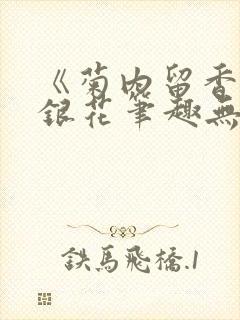 《菊內留香
銀花筆趣無
鉄馬飛橋.1